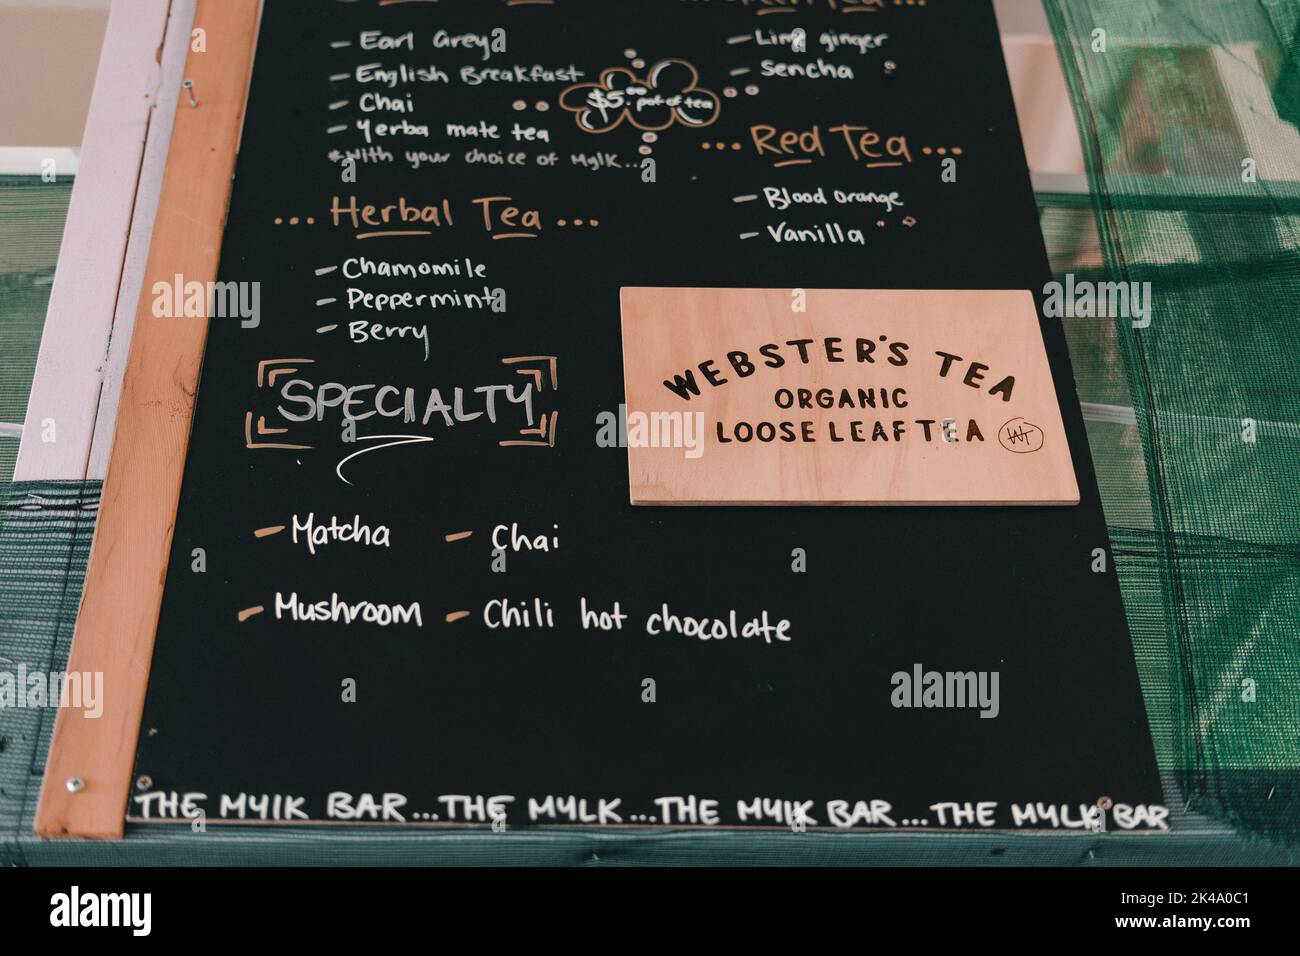 - Earl Grey
- English Breakfast
- Chai
- Yerba mate tea
*With your choice of Mylk...
$5.00 pot of tea
- Lime ginger
- Sencha
... Red Tea ...
- Blood orange
- Vanilla
... Herbal Tea ...
- Chamomile
- Peppermint
- Berry
SPECIALTY
- Matcha
- Chai
- Mushroom
- Chili hot chocolate
WEBSTER'S TEA
ORGANIC
LOOSE LEAF TEA
WT
THE MYLK BAR...THE MYLK...THE MYLK BAR...THE MYLK BAR
alamy
alamy
alamy
alamy
alamy
Image ID: 2K4A0C1
www.alamy.com